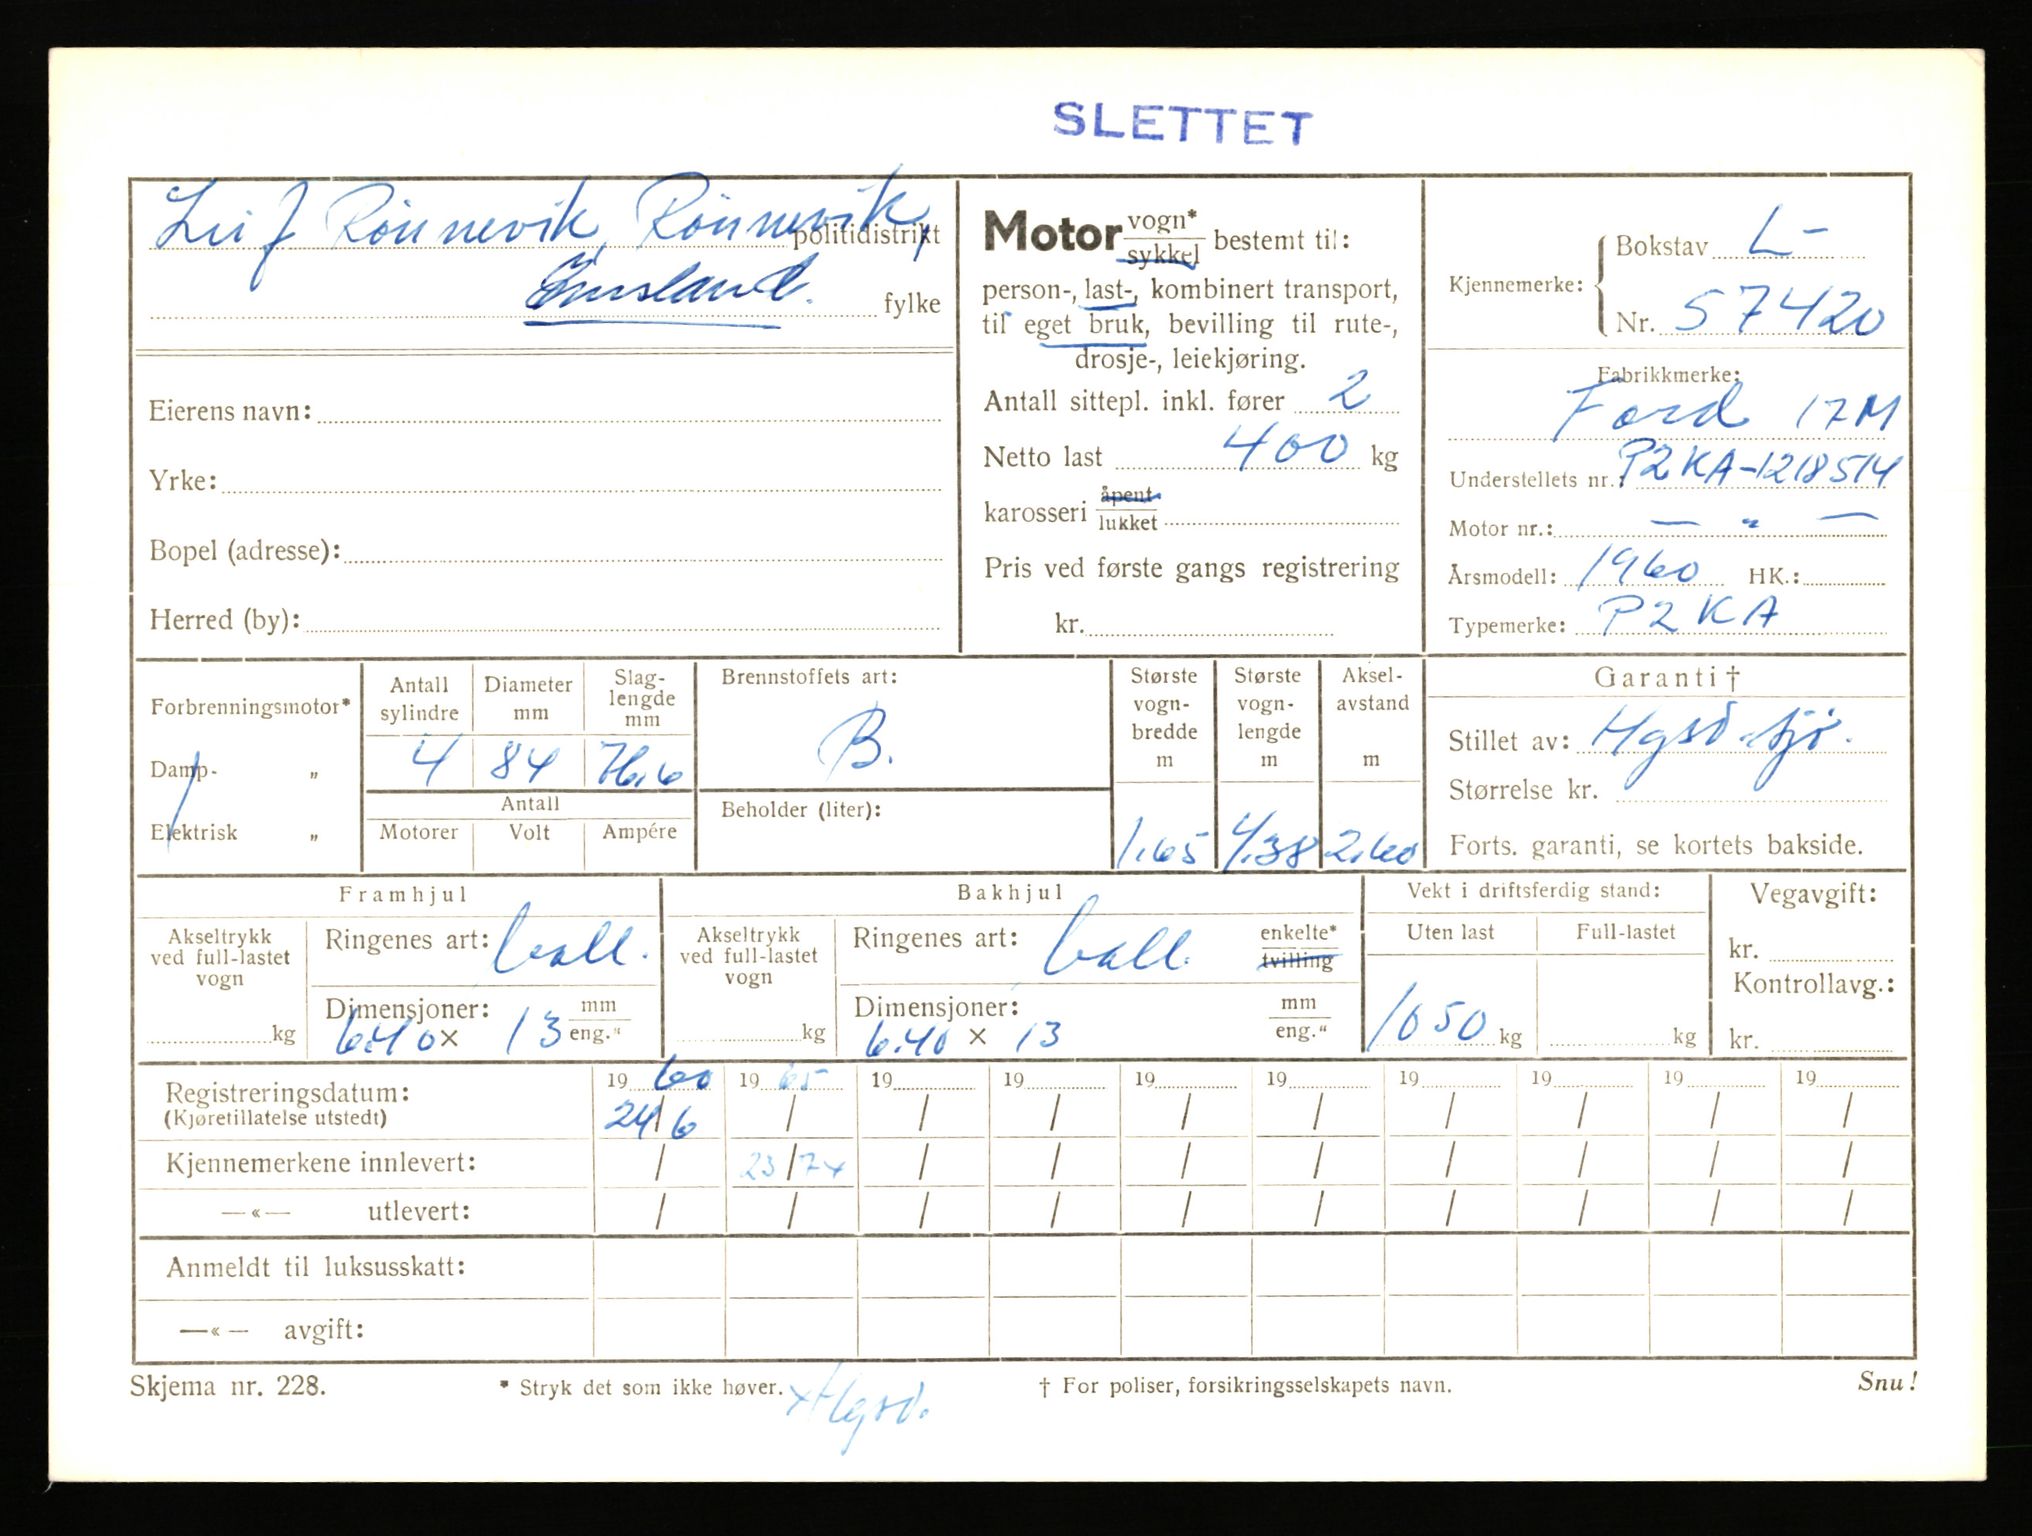 SLETTET
Leif Rönnevik, Rönnevik,
politidistrikt
fylke
Eierens navn:
Yrke:
Bopel (adresse):
Herred (by):
Motor vogn* / sykkel bestemt til:
person-, last-, kombinert transport,
til eget bruk, bevilling til rute-,
drosje-, leiekjøring.
Antall sittepl. inkl. fører 2
Netto last 400 kg
karosseri åpent / lukket
Pris ved første gangs registrering
kr.
Kjennemerke: Bokstav L-
Nr. 57420
Fabrikkmerke:
Ford 17M
Understellets nr.: P2KA-1218514
Motor nr.: — " —
Årsmodell: 1960 HK.:
Typemerke: P2KA
Forbrenningsmotor*
Damp- „
Elektrisk „
Antall sylindre
4
Diameter mm
84
Slag- lengde mm
76,6
Antall
Motorer Volt Ampére
Brennstoffets art:
B.
Beholder (liter):
Største vogn- bredde m
1.65
Største vogn- lengde m
4.38
Aksel- avstand m
2.60
Garanti †
Stillet av:
Størrelse kr.
Forts. garanti, se kortets bakside.
Framhjul
Akseltrykk ved full-lastet vogn
kg
Ringenes art: ball.
Dimensjoner: mm
6.40 x 13 eng."
Bakhjul
Akseltrykk ved full-lastet vogn
kg
Ringenes art: ball. enkelte* / tvilling
Dimensjoner: mm
6.40 x 13 eng."
Vekt i driftsferdig stand:
Uten last
1050 kg
Full-lastet
kg
Vegavgift:
kr.
Kontrollavg.:
kr.
Registreringsdatum: 19 60 19 65 19 19 19 19 19 19 19 19
(Kjøretillatelse utstedt) 24/6 / / / / / / / / /
Kjennemerkene innlevert: / 23/7 x / / / / / / / /
—«— utlevert: / / / / / / / / / /
Anmeldt til luksusskatt:
—«— avgift:
Skjema nr. 228. * Stryk det som ikke høver. † For poliser, forsikringsselskapets navn. Snu!